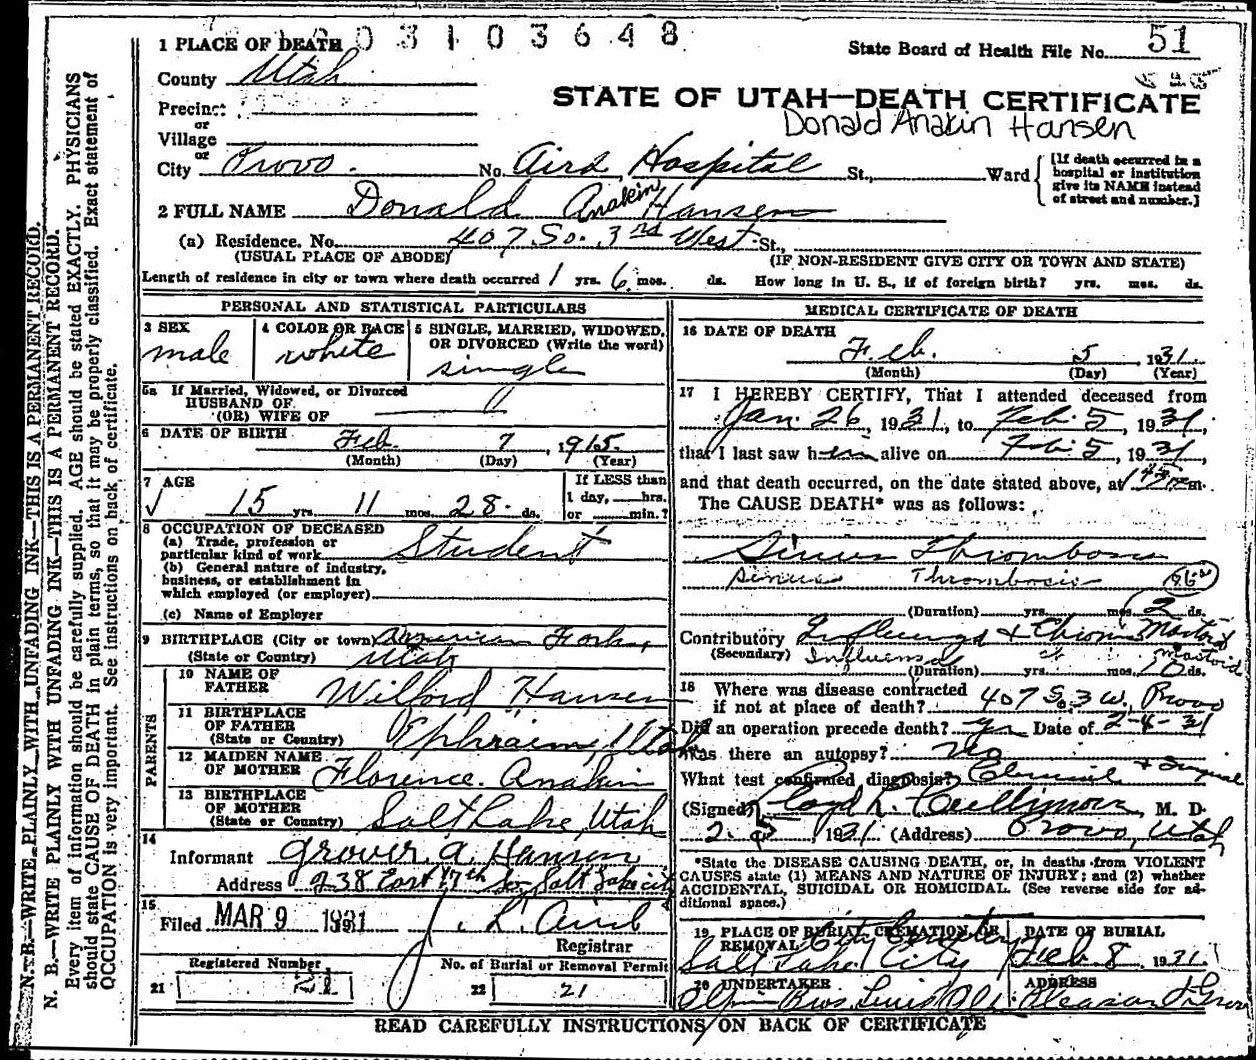 03103648
1 PLACE OF DEATH
State Board of Health File No. 51
County Utah
Precinct
STATE OF UTAH—DEATH CERTIFICATE
or
Village
Donald Anakin Hansen
or
City Provo. No. Aird Hospital St., Ward
[If death occurred in a hospital or institution give its NAME instead of street and number.]
2 FULL NAME Donald Anakin Hansen
(a) Residence. No. 407 So. 3rd West St.,
(USUAL PLACE OF ABODE) (IF NON-RESIDENT GIVE CITY OR TOWN AND STATE)
Length of residence in city or town where death occurred 1 yrs. 6 mos. ds. How long in U. S., if of foreign birth? yrs. mos. ds.
PERSONAL AND STATISTICAL PARTICULARS
3 SEX 4 COLOR OR RACE 5 SINGLE, MARRIED, WIDOWED, OR DIVORCED (Write the word)
male white single
5a If Married, Widowed, or Divorced
HUSBAND OF
(OR) WIFE OF
6 DATE OF BIRTH Feb 7, 1915
(Month) (Day) (Year)
7 AGE If LESS than
15 yrs. 11 mos. 28 ds. 1 day, hrs.
or min.?
8 OCCUPATION OF DECEASED
(a) Trade, profession or particular kind of work Student
(b) General nature of industry, business, or establishment in which employed (or employer)
(c) Name of Employer
9 BIRTHPLACE (City or town) American Fork,
(State or Country) Utah
PARENTS
10 NAME OF FATHER Wilford Hansen
11 BIRTHPLACE OF FATHER (State or Country) Ephraim, Utah
12 MAIDEN NAME OF MOTHER Florence Anakin
13 BIRTHPLACE OF MOTHER (State or Country) Salt Lake, Utah
14 Informant Grover A. Hansen
Address 238 East 17th So. Salt Lake city
15 Filed MAR 9 1931 J. L. Aird
Registrar
Registered Number No. of Burial or Removal Permit
21 21 22 21
MEDICAL CERTIFICATE OF DEATH
16 DATE OF DEATH
Feb. 5, 1931
(Month) (Day) (Year)
17 I HEREBY CERTIFY, That I attended deceased from
Jan. 26, 1931, to Feb. 5, 1931,
that I last saw him alive on Feb. 5, 1931,
and that death occurred, on the date stated above, at 1 45 m.
The CAUSE DEATH* was as follows:
Sinus Thrombosis
Sinus Thrombosis
(Duration) yrs. mos. 2 ds.
Contributory Influenza & Chronic Mastoid
(Secondary) Influenza Mastoid
(Duration) yrs. mos. 10 ds.
18 Where was disease contracted
if not at place of death? 407 S. 3 W. Provo
Did an operation precede death? yes Date of 2-4-31
Was there an autopsy? No
What test confirmed diagnosis? Clinical + Surgical
(Signed) Lloyd L. Cullimore, M. D.
2-5 1931 (Address) Provo, Utah
*State the DISEASE CAUSING DEATH, or, in deaths from VIOLENT
CAUSES state (1) MEANS AND NATURE OF INJURY; and (2) whether
ACCIDENTAL, SUICIDAL OR HOMICIDAL. (See reverse side for additional space.)
19 PLACE OF BURIAL CREMATION OR REMOVAL DATE OF BURIAL
City Cemetery
Salt Lake City Feb 8 1931
20 UNDERTAKER ADDRESS
Bros. Pleasant Grove
READ CAREFULLY INSTRUCTIONS ON BACK OF CERTIFICATE
N. B.—WRITE PLAINLY WITH UNFADING INK—THIS IS A PERMANENT RECORD.
N. B.—WRITE PLAINLY WITH UNFADING INK—THIS IS A PERMANENT RECORD.
Every item of information should be carefully supplied. AGE should be stated EXACTLY. PHYSICIANS
should state CAUSE OF DEATH in plain terms, so that it may be properly classified. Exact statement of
OCCUPATION is very important. See instructions on back of certificate.